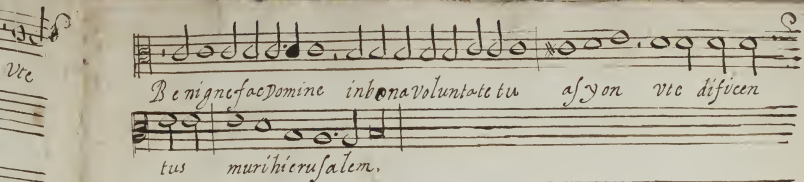 Vte
Benigne fac Domine in bona Voluntate tu a syon vte dificen
tus muri hierusalem.